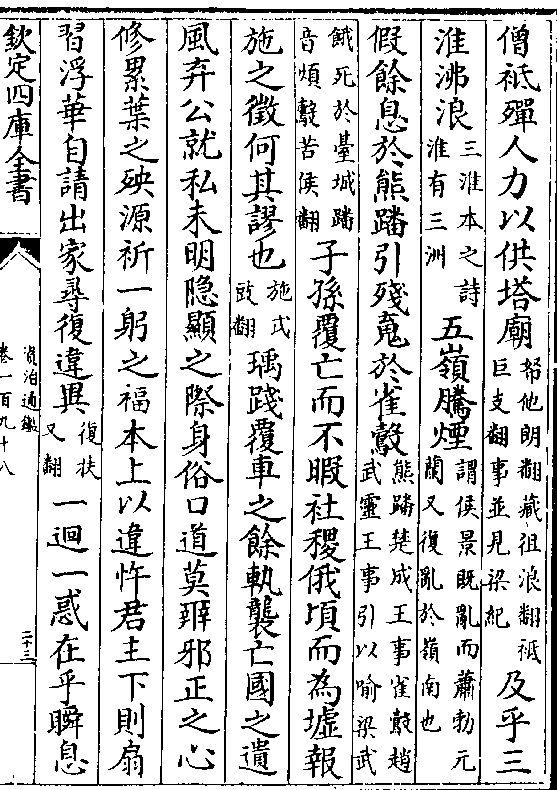 僧祇殫人力以供塔廟帑他朗翻藏徂浪翻祇巨支翻事並見梁紀及乎三
淮沸浪三淮本之詩淮有三洲五嶺騰煙謂侯景既亂而蕭勃元蘭又復亂於嶺南也
假餘息於熊蹯引殘䰟於雀鷇熊蹯楚成王事雀鷇趙武靈王事引以喻梁武
餓死於臺城蹯音煩鷇苦侯翻子孫覆亡而不暇社稷俄頃而為墟報
施之徵何其謬也施式豉翻瑀踐覆車之餘軌襲亡國之遺
風弃公就私未明隐顯之際身俗口道莫辨邪正之心
修累葉之殃源祈一躬之福本上以違忤君主下則扇
習浮華自請出家尋復違異復扶又翻一迴一惑在乎瞬息
欽定四庫全書
資治通鑑
卷一百九十八
二十三